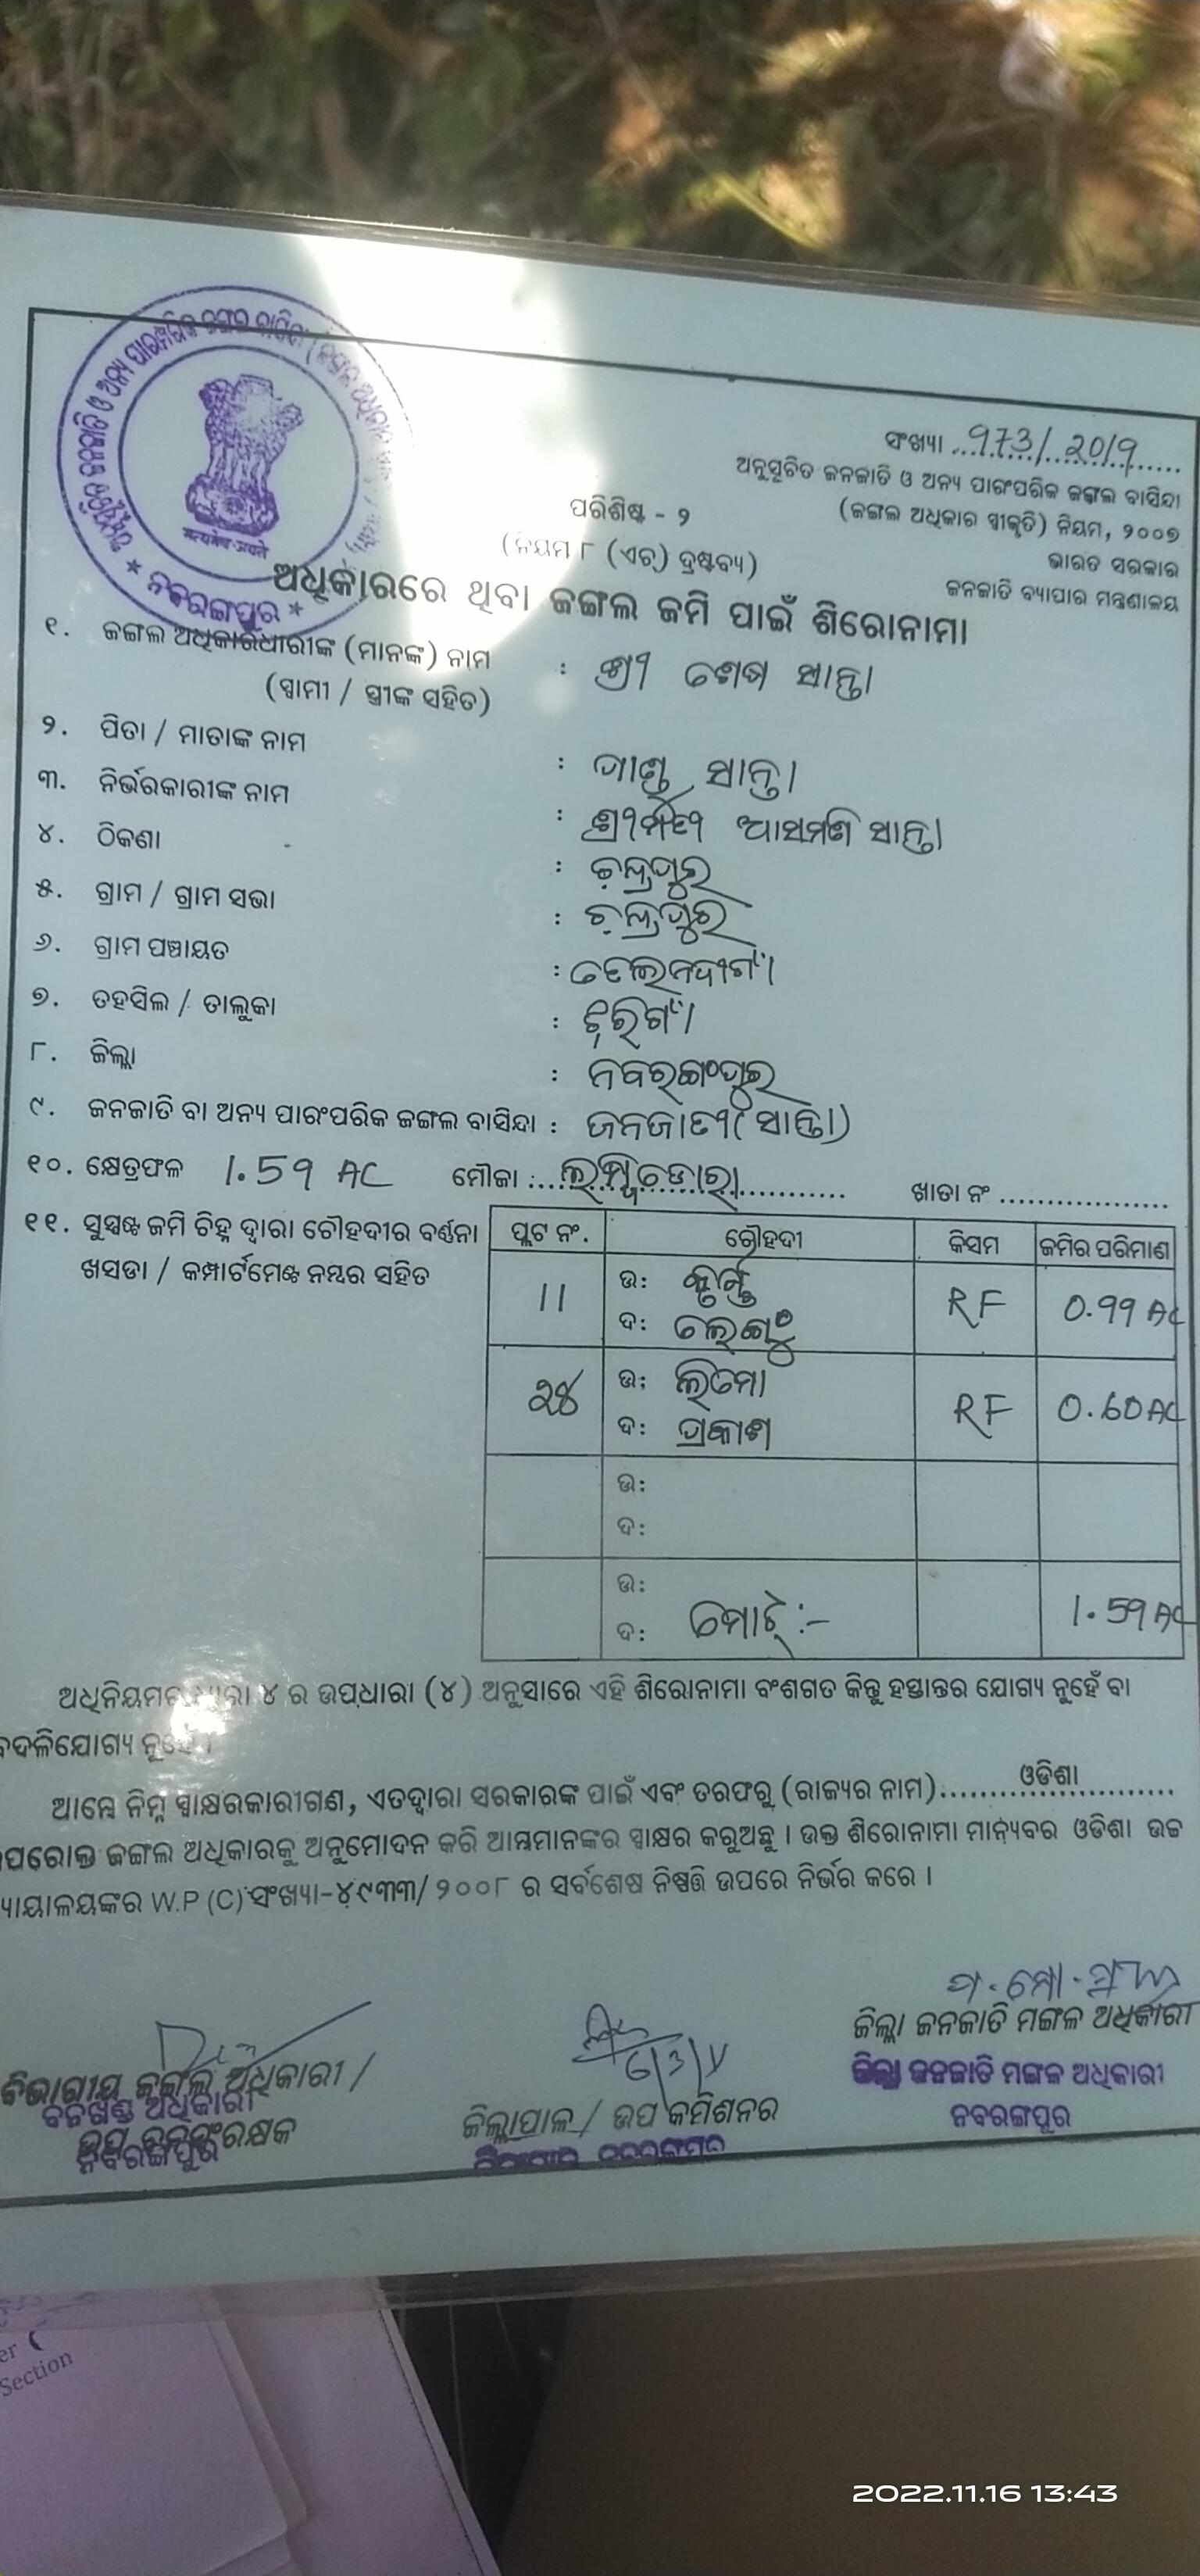 ସଂଖ୍ୟା 973/2019
ଅନୁସୂଚିତ ଜନଜାତି ଓ ଅନ୍ୟ ପାରଂପରିକ ଜଙ୍ଗଲ ବାସିନ୍ଦା
(ଜଙ୍ଗଲ ଅଧିକାର ସ୍ୱୀକୃତି) ନିୟମ, ୨୦୦୭
ଭାରତ ସରକାର
ଜନଜାତି ବ୍ୟାପାର ମନ୍ତ୍ରଣାଳୟ
ପରିଶିଷ୍ଟ - ୨
(ନିୟମ ୮ (ଏଚ୍) ଦ୍ରଷ୍ଟବ୍ୟ)
ନବରଙ୍ଗପୁର
ଅଧିକାରରେ ଥିବା ଜଙ୍ଗଲ ଜମି ପାଇଁ ଶିରୋନାମା
୧. ଜଙ୍ଗଲ ଅଧିକାରଧାରୀଙ୍କ (ମାନଙ୍କ) ନାମ : ଶ୍ରୀ ଶେଷ ସାନ୍ତା
(ସ୍ୱାମୀ / ସ୍ତ୍ରୀଙ୍କ ସହିତ)
୨. ପିତା / ମାତାଙ୍କ ନାମ : ପାଣ୍ଡୁ ସାନ୍ତା
୩. ନିର୍ଭରକାରୀଙ୍କ ନାମ : ଶ୍ରୀମତୀ ଆସମଣି ସାନ୍ତା
୪. ଠିକଣା : ଚନ୍ଦ୍ରପୁର
୫. ଗ୍ରାମ / ଗ୍ରାମ ସଭା : ଚନ୍ଦ୍ରପୁର
୬. ଗ୍ରାମ ପଞ୍ଚାୟତ :
୭. ତହସିଲ / ତାଲୁକା : ଝରିଗାଁ
୮. ଜିଲ୍ଲା : ନବରଙ୍ଗପୁର
୯. ଜନଜାତି ବା ଅନ୍ୟ ପାରଂପରିକ ଜଙ୍ଗଲ ବାସିନ୍ଦା : ଜନଜାତୀ (ସାନ୍ତା)
୧୦. କ୍ଷେତ୍ରଫଳ 1.59 AC ମୌଜା : ଖାତା ନଂ
୧୧. ସୁସ୍ପଷ୍ଟ ଜମି ଚିହ୍ନ ଦ୍ୱାରା ଚୌହଦୀର ବର୍ଣ୍ଣନା
ଖସଡା / କମ୍ପାର୍ଟମେଣ୍ଟ ନମ୍ବର ସହିତ
ପ୍ଲଟ ନଂ. ଚୌହଦୀ କିସମ ଜମିର ପରିମାଣ
11 ଉ: RF 0.99 AC
ଦ:
28 ଉ: ଲିମୋ RF 0.60 AC
ଦ: ପ୍ରକାଶ
ଉ:
ଦ:
ଉ:
ଦ: ମୋଟ୍ :- 1.59 AC
ଅଧିନିୟମର ଧାରା ୪ ର ଉପଧାରା (୪) ଅନୁସାରେ ଏହି ଶିରୋନାମା ବଂଶଗତ କିନ୍ତୁ ହସ୍ତାନ୍ତର ଯୋଗ୍ୟ ନୁହେଁ ବା
ବଦଳିଯୋଗ୍ୟ ନୁହେଁ ।
ଆମ୍ଭେ ନିମ୍ନ ସ୍ୱାକ୍ଷରକାରୀଗଣ, ଏତଦ୍ୱାରା ସରକାରଙ୍କ ପାଇଁ ଏବଂ ତରଫରୁ (ରାଜ୍ୟର ନାମ) ଓଡିଶା
ଉପରୋକ୍ତ ଜଙ୍ଗଲ ଅଧିକାରକୁ ଅନୁମୋଦନ କରି ଆମ୍ଭମାନଙ୍କର ସ୍ୱାକ୍ଷର କରୁଅଛୁ । ଉକ୍ତ ଶିରୋନାମା ମାନ୍ୟବର ଓଡିଶା ଉଚ୍ଚ
ନ୍ୟାୟାଳୟଙ୍କର W.P (C) ସଂଖ୍ୟା-୪୯୩୩/୨୦୦୮ ର ସର୍ବଶେଷ ନିଷ୍ପତ୍ତି ଉପରେ ନିର୍ଭର କରେ ।
ବିଭାଗୀୟ ଜଙ୍ଗଲ ଅଧିକାରୀ /
ବନଖଣ୍ଡ ଅଧିକାରୀ
ଉପ ବନସଂରକ୍ଷକ
ନବରଙ୍ଗପୁର
ଜିଲ୍ଲାପାଳ / ଉପ କମିଶନର
ଜିଲ୍ଲା ଜନଜାତି ମଙ୍ଗଳ ଅଧିକାରୀ
ଜିଲ୍ଲା ଜନଜାତି ମଙ୍ଗଳ ଅଧିକାରୀ
ନବରଙ୍ଗପୁର
Section
2022.11.16 13:43